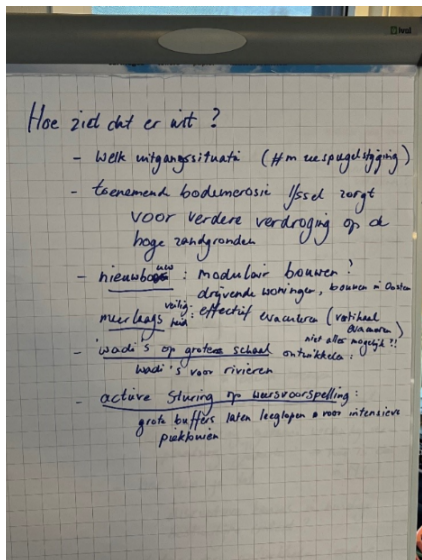 Hoe ziet dat er uit?
- welk uitgangssituatie (#m zeespiegelstijging)
- toenemend bodemerosie IJssel zorgt
voor verdere verdroging op de
hoge zandgronden
- nieuwbouw : modulair bouwen?
drijvende woningen, bouwen in Oosten
meerlaags veiligheid : effectief evacueren (vertikaal evacueren)
niet alles mogelijk!!
- wadi's op grotere schaal ontwikkelen.
wadi's voor rivieren
- active sturing op weersvoorspelling:
grote buffers laten leeglopen voor intensieve
piekbuien